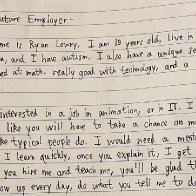 uture Employer-
me is Ryan Lowry, I am 19 years old, live in
a, and I have autism. I also have a unique se
ed at math, really good with technology, and a
interested in a job in animation, or in IT. I
like you will have to take a chance on me
like typical people do. I would need a ment
I learn quickly, once you explain it, I get
you hire me and teach me, you'll be glad t
ow up every day, do what you tell me to